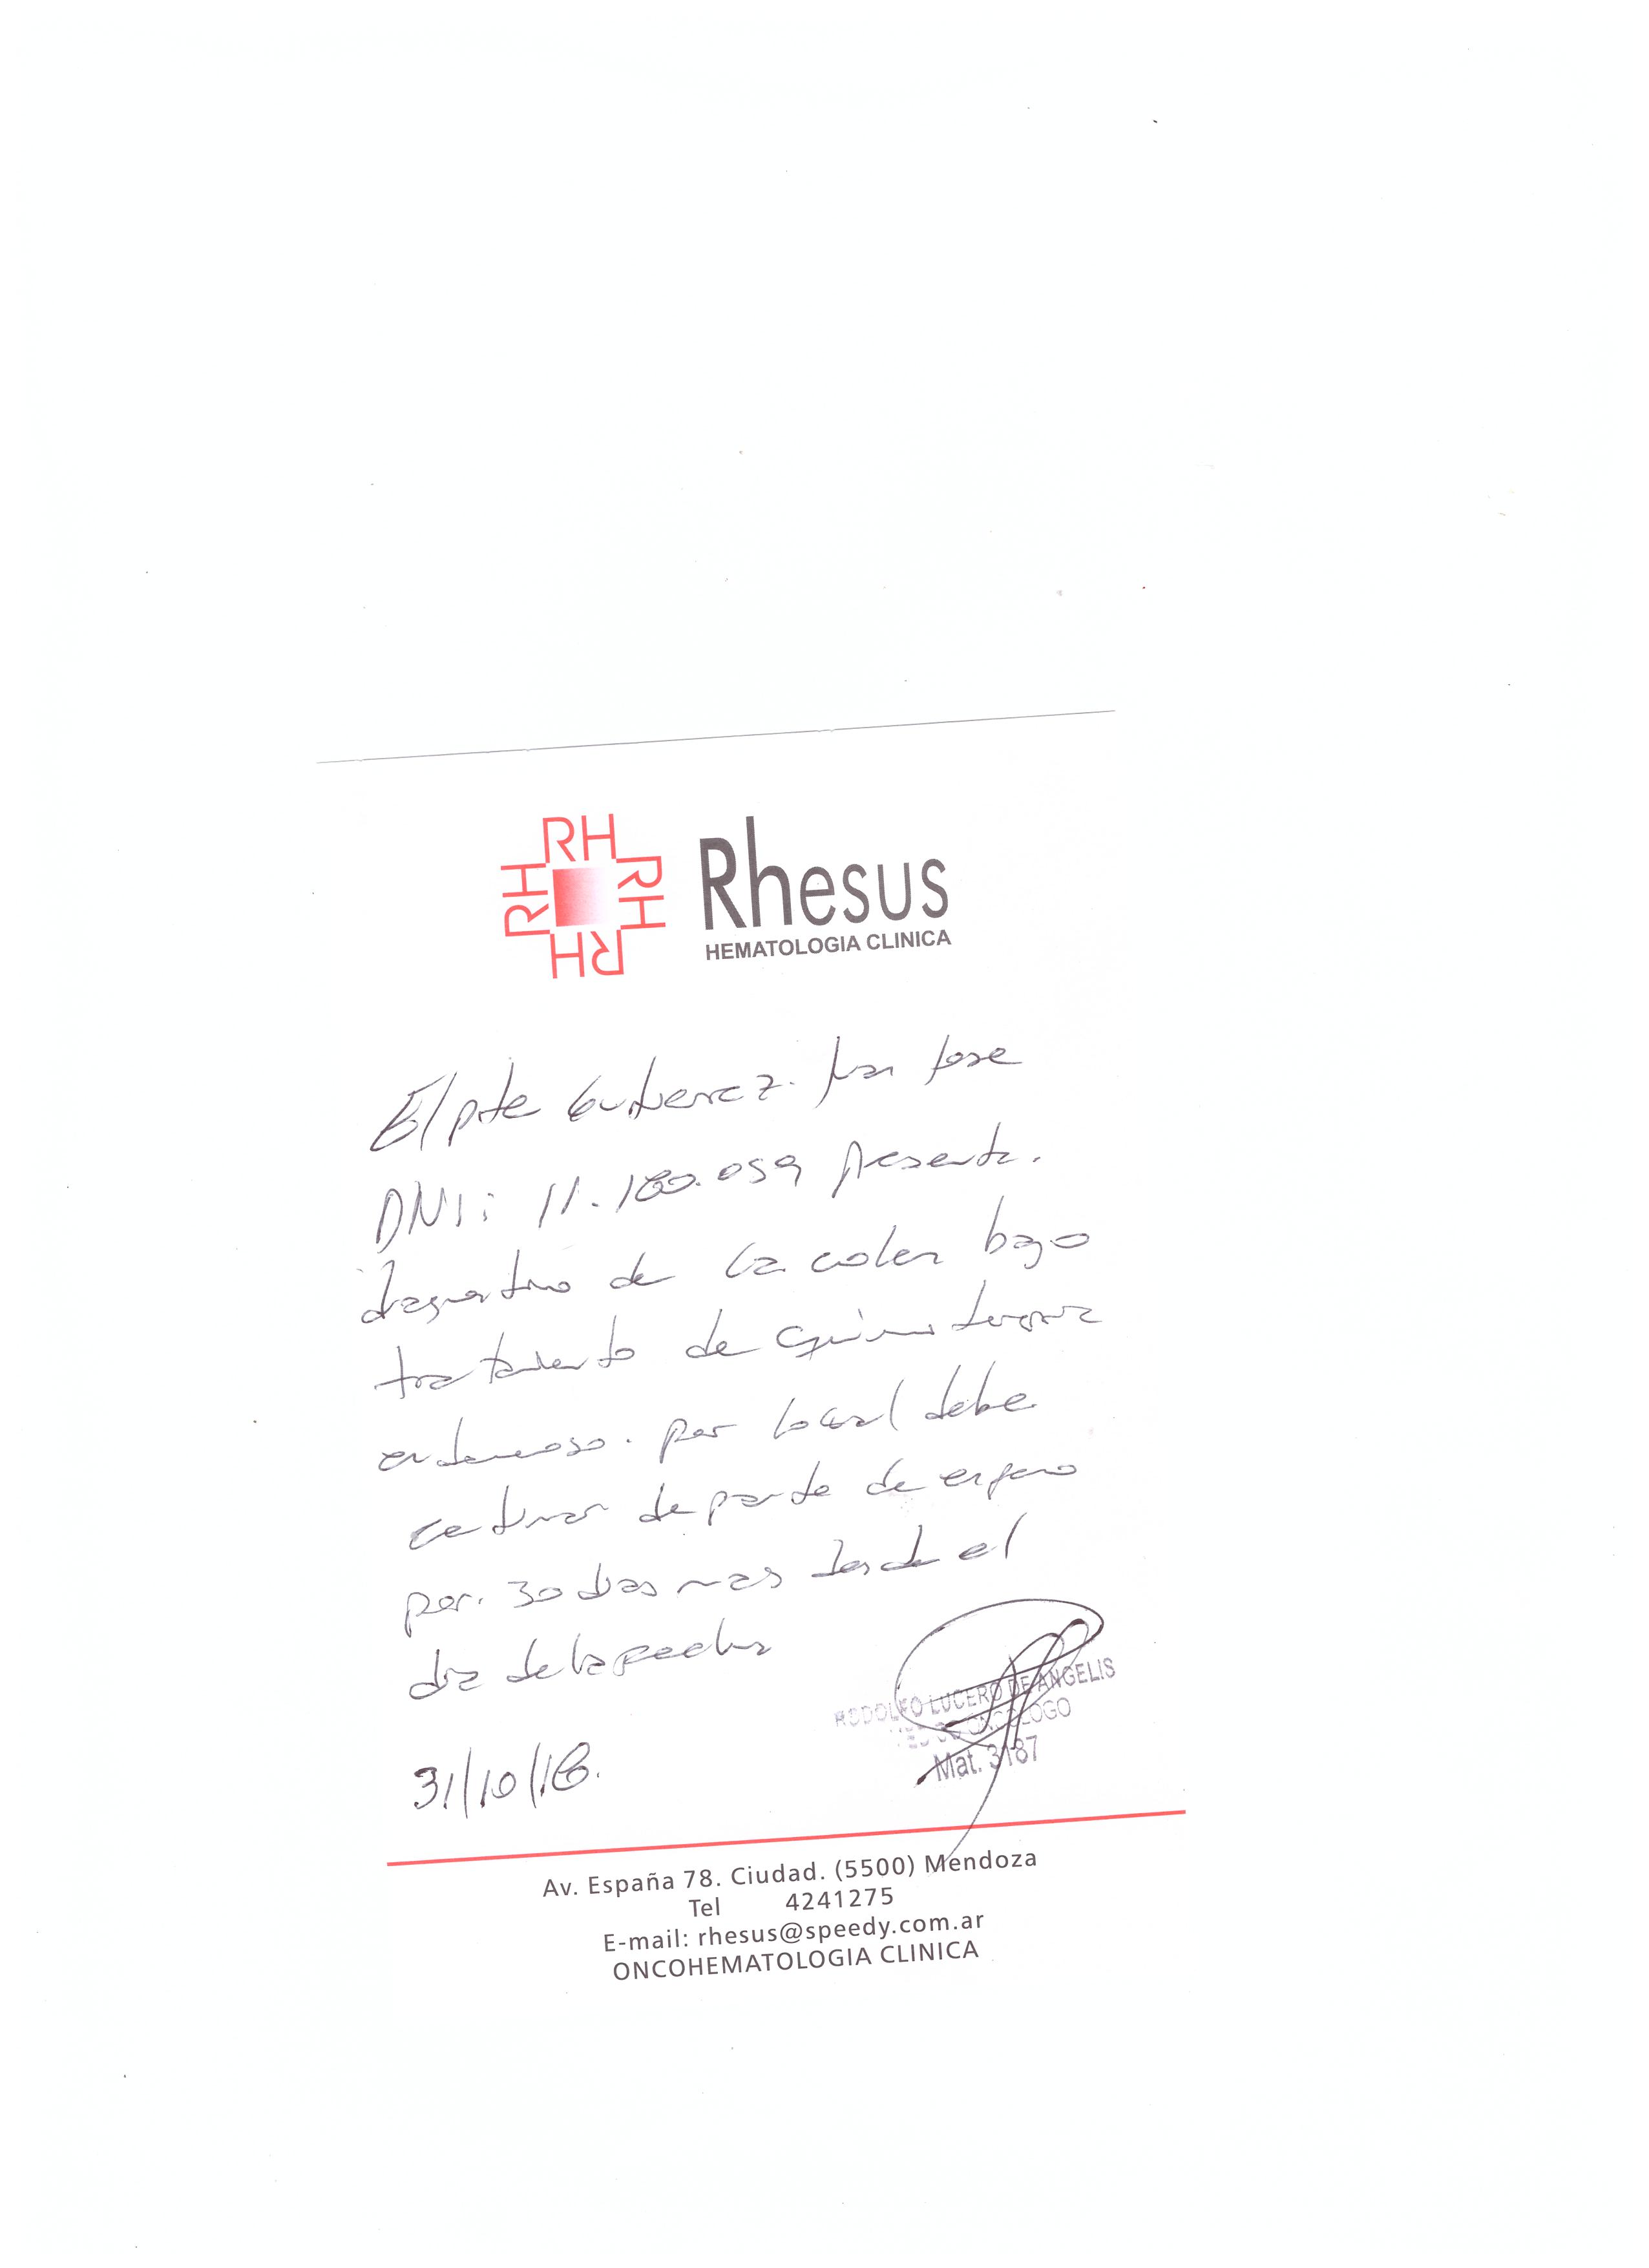 RH RH RH RH
Rhesus
HEMATOLOGIA CLINICA
El pte Gutierrez. Juan Jose
DNI: 11.180.059 presenta.
diagnostico de Ca colon bajo
tratamiento de quimioterapia
endovenoso. por lo cual debe
continuar de parte de enfermo
por. 30 dias mas desde el
dia de la fecha
31/10/18.
RODOLFO LUCERO DE ANGELIS
ONCOLOGO
Mat. 3187
Av. España 78. Ciudad. (5500) Mendoza
Tel 4241275
E-mail: rhesus@speedy.com.ar
ONCOHEMATOLOGIA CLINICA